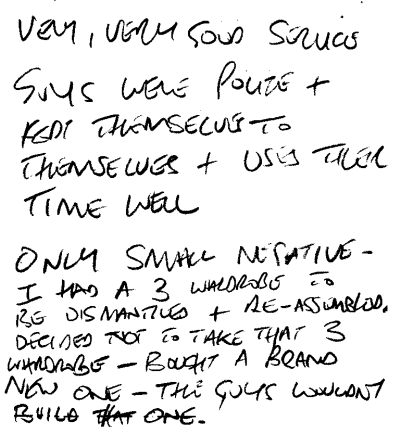 VERY, VERY GOOD SERVICE
GUYS WERE POLITE +
KEPT THEMSELVES TO
THEMSELVES + USED THEIR
TIME WELL
ONLY SMALL NEGATIVE -
I HAD A 3 WARDROBE TO
BE DISMANTLED + RE-ASSEMBLED.
DECIDED NOT TO TAKE THAT 3
WARDROBE - BOUGHT A BRAND
NEW ONE - THE GUYS WOULDN'T
BUILD THAT ONE.